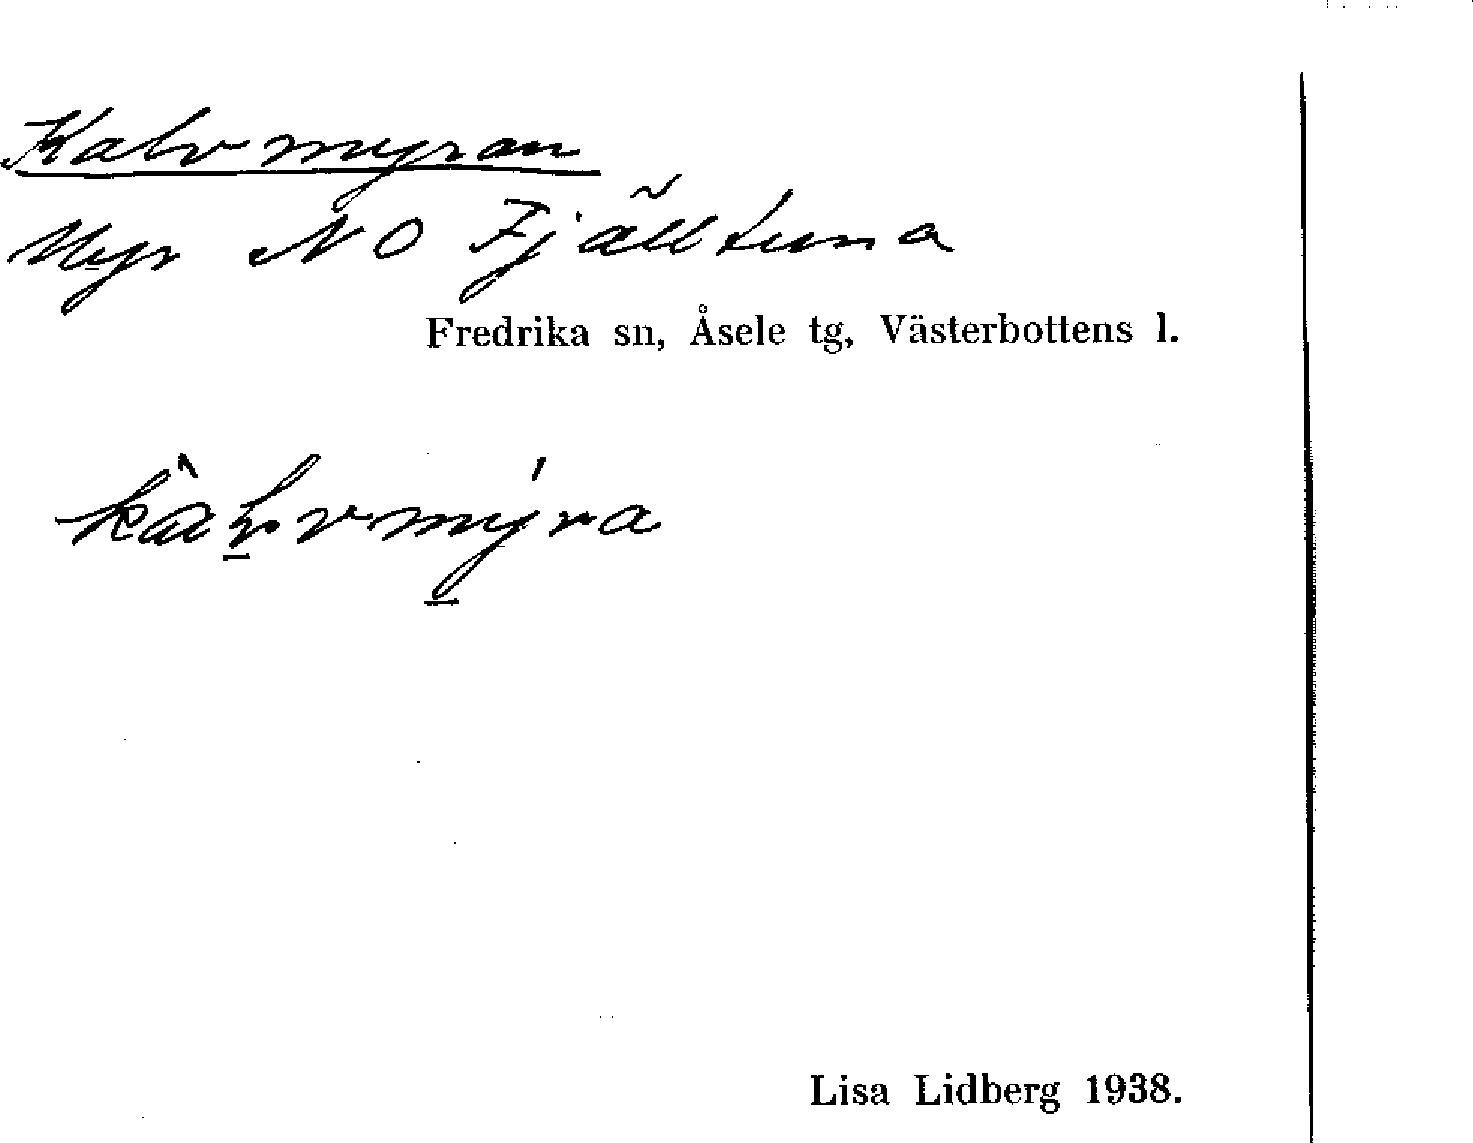 Kalvmyran
Myr NO Fjälltuna
Fredrika sn, Åsele tg, Västerbottens l.
Lisa Lidberg 1938.